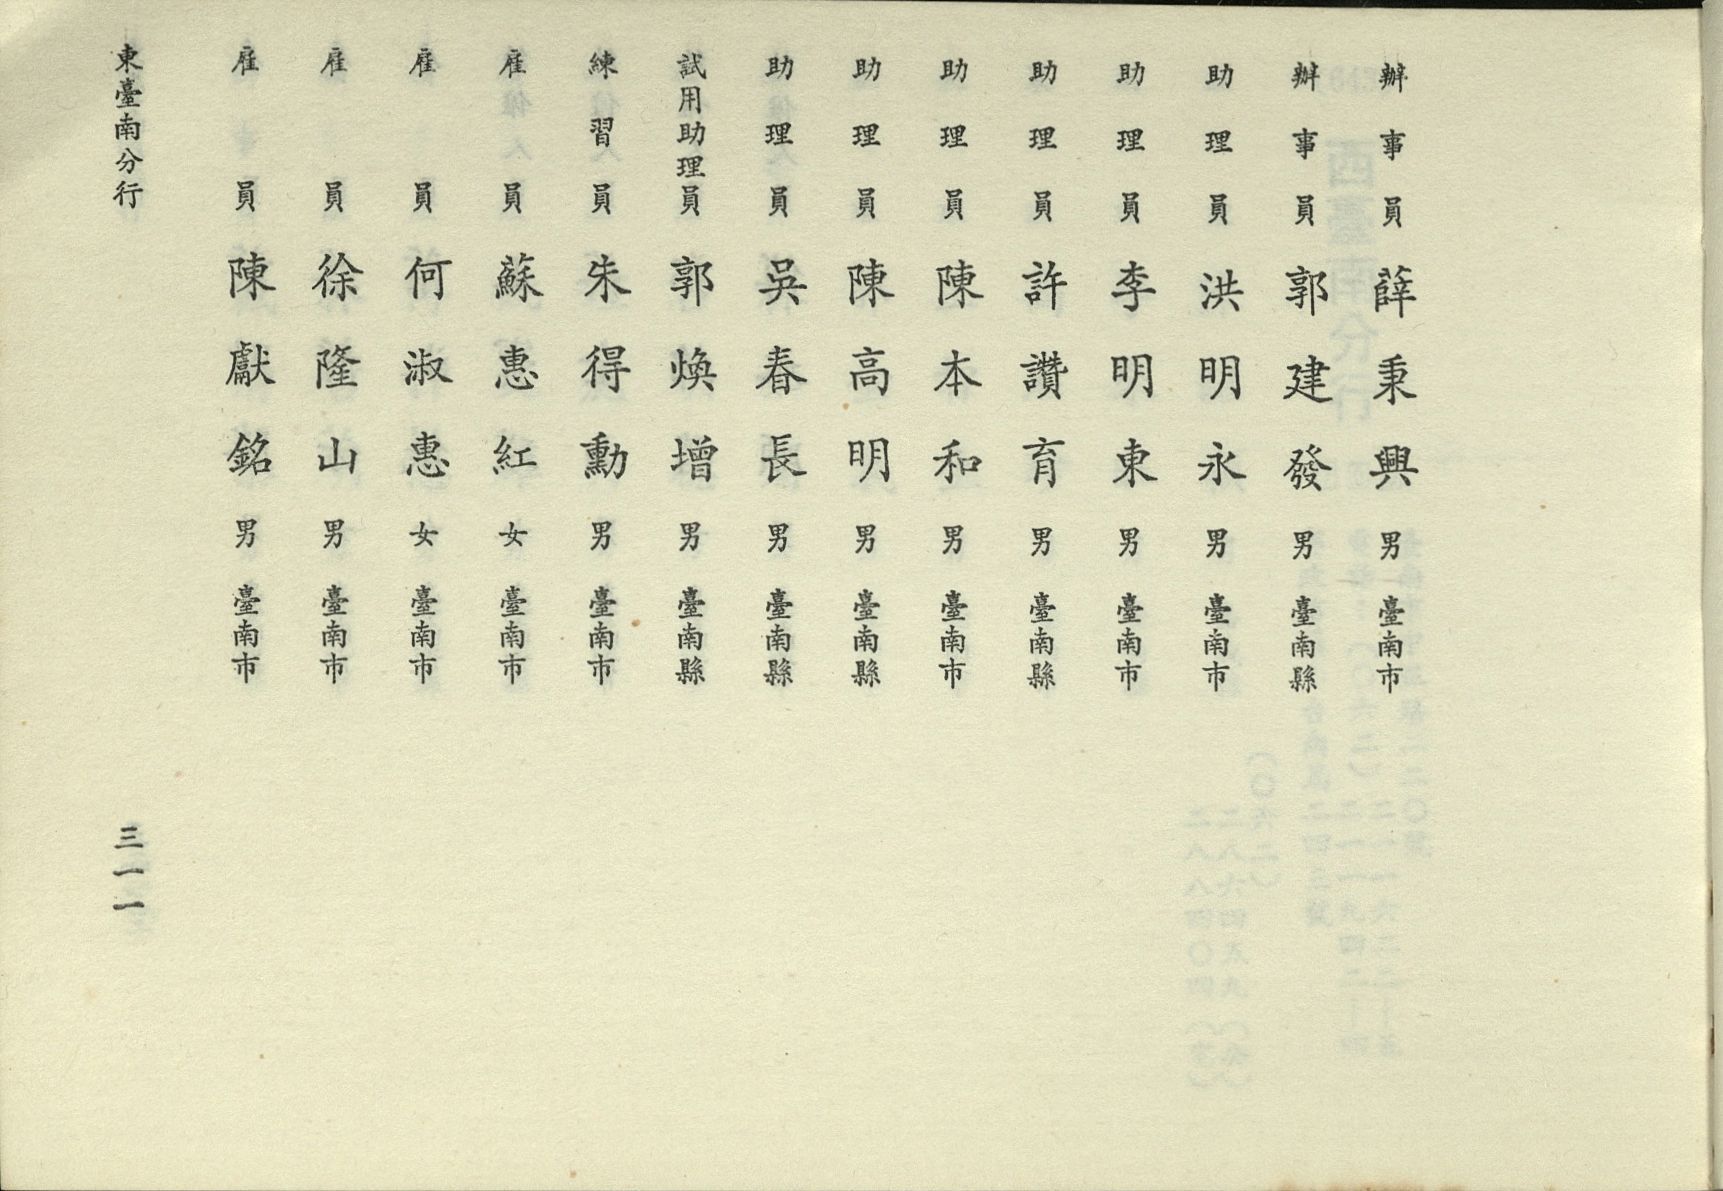 辦事員 薛秉興 男 臺南市
辦事員 郭建發 男 臺南縣
助理員 洪明永 男 臺南市
助理員 李明東 男 臺南市
助理員 許讚育 男 臺南縣
助理員 陳本和 男 臺南市
助理員 陳高明 男 臺南縣
助理員 吳春長 男 臺南縣
試用助理員 郭煥增 男 臺南縣
練習員 朱得勳 男 臺南市
雇員 蘇惠紅 女 臺南市
雇員 何淑惠 女 臺南市
雇員 徐隆山 男 臺南市
雇員 陳獻銘 男 臺南市
東臺南分行
三一一